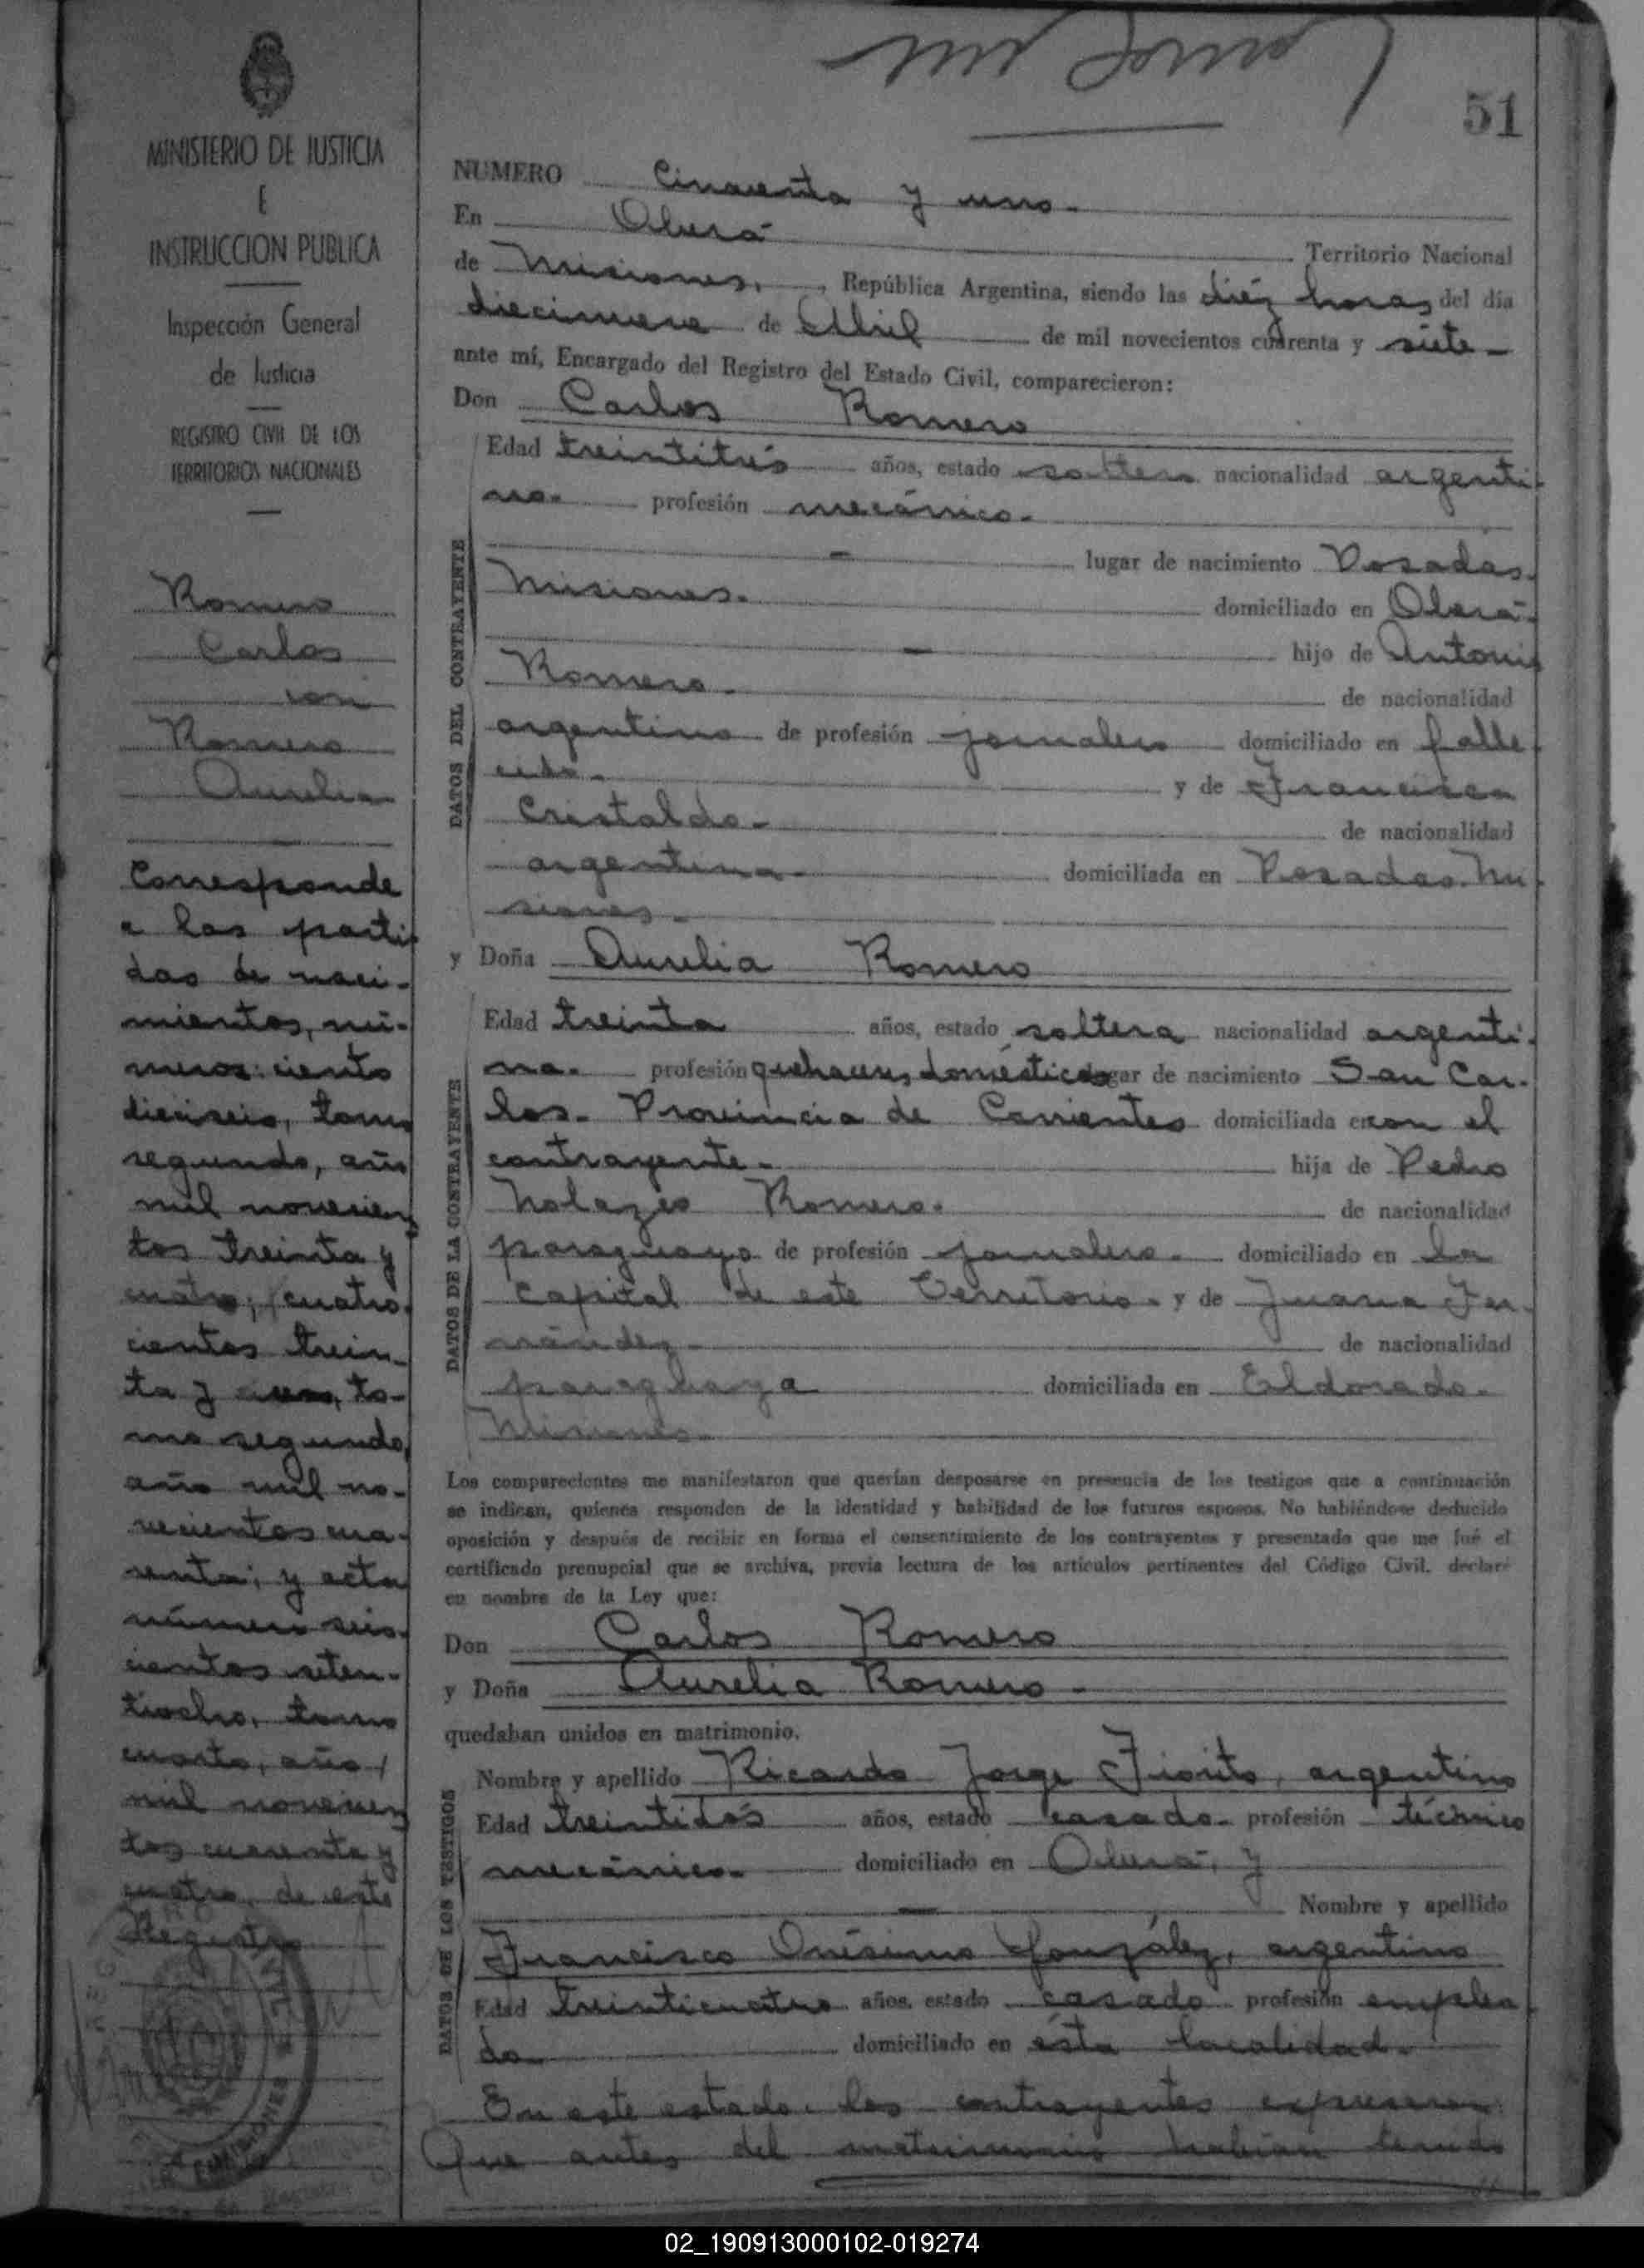 51
MINISTERIO DE JUSTICIA
E
INSTRUCCION PUBLICA
Inspección General
de Justicia
REGISTRO CIVIL DE LOS
TERRITORIOS NACIONALES
Romero
Carlos
con
Romero
Aurelia
Corresponde
a las parti-
das de naci-
mientos, nú-
meros: ciento
dieciseis, tomo
segundo, año
mil novecien
tos treinta y
cuatro; cuatro-
cientos trein-
ta y uno, to-
mo segundo,
año mil no-
vecientos cua-
renta; y acta
número seis-
cientos seten-
tiocho, tomo
cuarto, año
mil novecien
tos cuarenta y
cuatro, de este
Registro
NUMERO Cincuenta y uno.
En Oberá Territorio Nacional
de Misiones, República Argentina, siendo las diéz horas del día
diecinueve de Abril de mil novecientos cuarenta y siete
ante mí, Encargado del Registro del Estado Civil, comparecieron:
Don Carlos Romero
DATOS DEL CONTRAYENTE
Edad treintitrés años, estado soltero nacionalidad argenti-
no. profesión mecánico.
lugar de nacimiento Posadas.
Misiones. domiciliado en Oberá.
hijo de Antonio
Romero. de nacionalidad
argentino de profesión jornalero domiciliado en falle
cido. y de Francisca
Cristaldo. de nacionalidad
argentina. domiciliada en Posadas. Mi
siones.
y Doña Aurelia Romero
DATOS DE LA CONTRAYENTE
Edad treinta años, estado soltera nacionalidad argenti-
na. profesión quehaceres domésticos lugar de nacimiento San Car-
los. Provincia de Corrientes domiciliada en con el
contrayente. hija de Pedro
Romero. de nacionalidad
paraguayo de profesión jornalero. domiciliado en la
capital de este Territorio. y de Juana Fer-
nández. de nacionalidad
paraguaya domiciliada en Eldorado.
Misiones.
Los comparecientes me manifestaron que querían desposarse en presencia de los testigos que a continuación
se indican, quienes responden de la identidad y habilidad de los futuros esposos. No habiéndose deducido
oposición y después de recibir en forma el consentimiento de los contrayentes y presentado que me fué el
certificado prenupcial que se archiva, previa lectura de los artículos pertinentes del Código Civil, declaré
en nombre de la Ley que:
Don Carlos Romero
y Doña Aurelia Romero
quedaban unidos en matrimonio.
DATOS DE LOS TESTIGOS
Nombre y apellido Ricardo Jorge Fiorito, argentino
Edad treintidós años, estado casado. profesión técnico
mecánico. domiciliado en Oberá, y
Nombre y apellido
Francisco Onésimo González, argentino
Edad treinticuatro años, estado casado profesión emplea
do domiciliado en ésta localidad.
En este estado, los contrayentes expresaron:
Que antes del matrimonio habían tenido
02_190913000102-019274